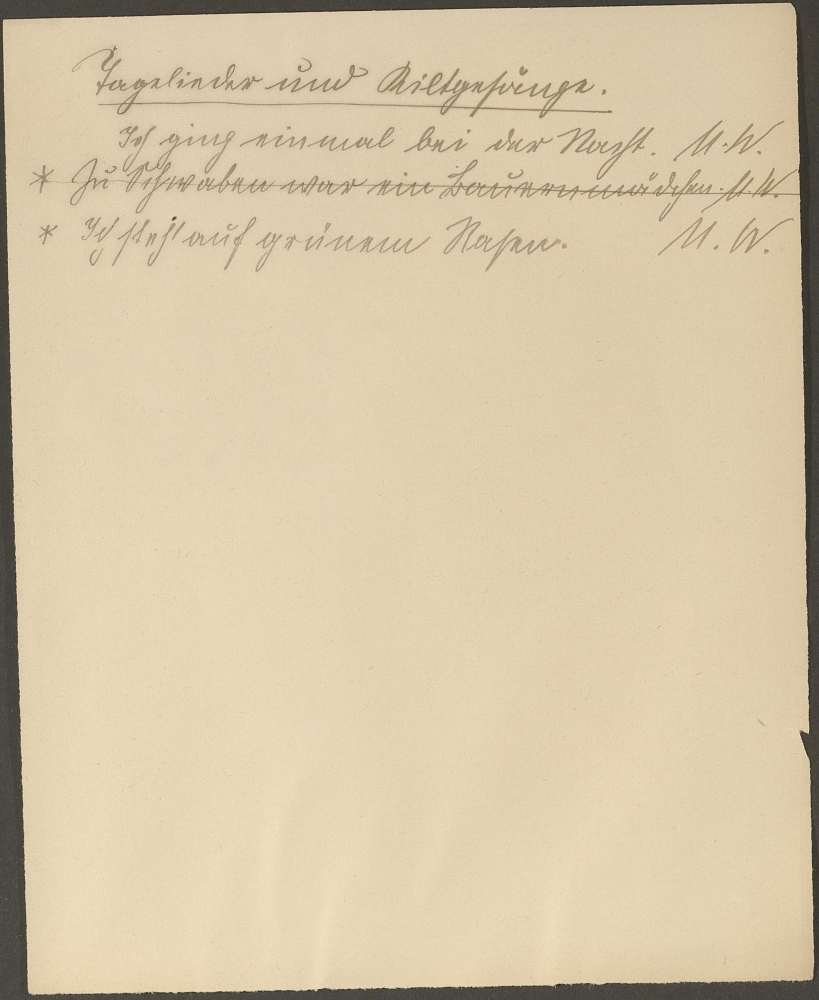 Tagelieder und Kiltgesänge.
Ich ging einmal bei der Nacht. U. W.
* Zu Schwaben war ein Bauernmädchen. U. W.
* Ich steh' auf grünem Rasen. U. W.